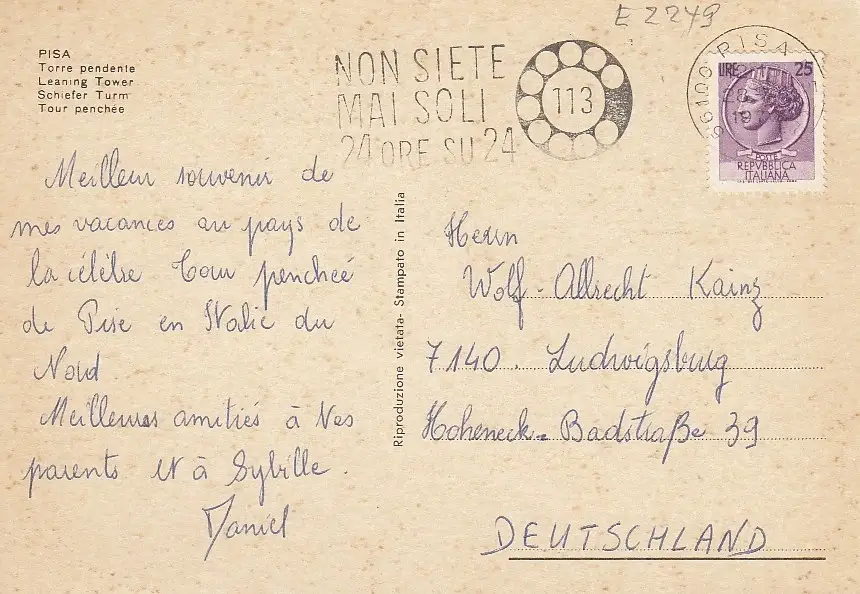 E 2249
PISA
Torre pendente
Leaning Tower
Schiefer Turm
Tour penchée
NON SIETE
MAI SOLI
24 ORE SU 24
113
56100 PISA
LIRE 25
POSTE
REPVBBLICA
ITALIANA
Meilleur souvenir de
mes vacances au pays de
la célèbre Tour penchée
de Pise en Italie du
Nord.
Meilleures amitiés à tes
parents et à Sybille.
Daniel
Riproduzione vietata - Stampato in Italia
Herrn
Wolf-Albrecht Kainz
7140. Ludwigsburg
Hoheneck- Badstraße 39
DEUTSCHLAND